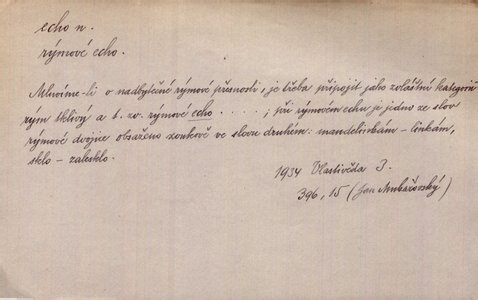 echo n.
rýmové echo.
Mluvíme-li o nadbytečné rýmové přesnosti, je třeba připojit jako zvláštní kategorii
rým tklivý a t. zv. rýmové echo . . . . . ; při rýmovém echu je jedno ze slov
rýmové dvojice obsaženo zvukově ve slovu druhém: mandelinkám – linkám,
sklo – zalesklo.
1934 Vlastivěda 3.
396, 15 (Jan Mukařovský)